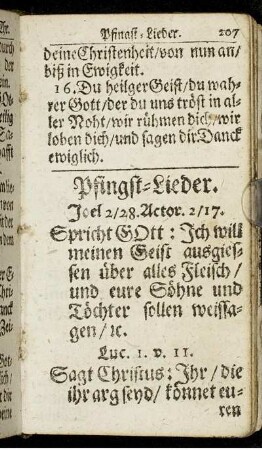 Pfingst-Lieder. 207
deine Christenheit/von nun an/
biß in Ewigkeit.
16. Du heilger Geist/du wah-
rer Gott/der du uns tröst in al-
ler Noht/wir rühmen dich/wir
loben dich/und sagen dir Danck
ewiglich.
Pfingst-Lieder.
Joel 2/28. Actor. 2/17.
Spricht GOtt: Ich will
meinen Geist ausgies-
sen über alles Fleisch/
und eure Söhne und
Töchter sollen weissa-
gen/ꝛc.
Luc. 1. v. 11.
Sagt Christus: Ihr/die
ihr arg seyd/könnet eu-
ren